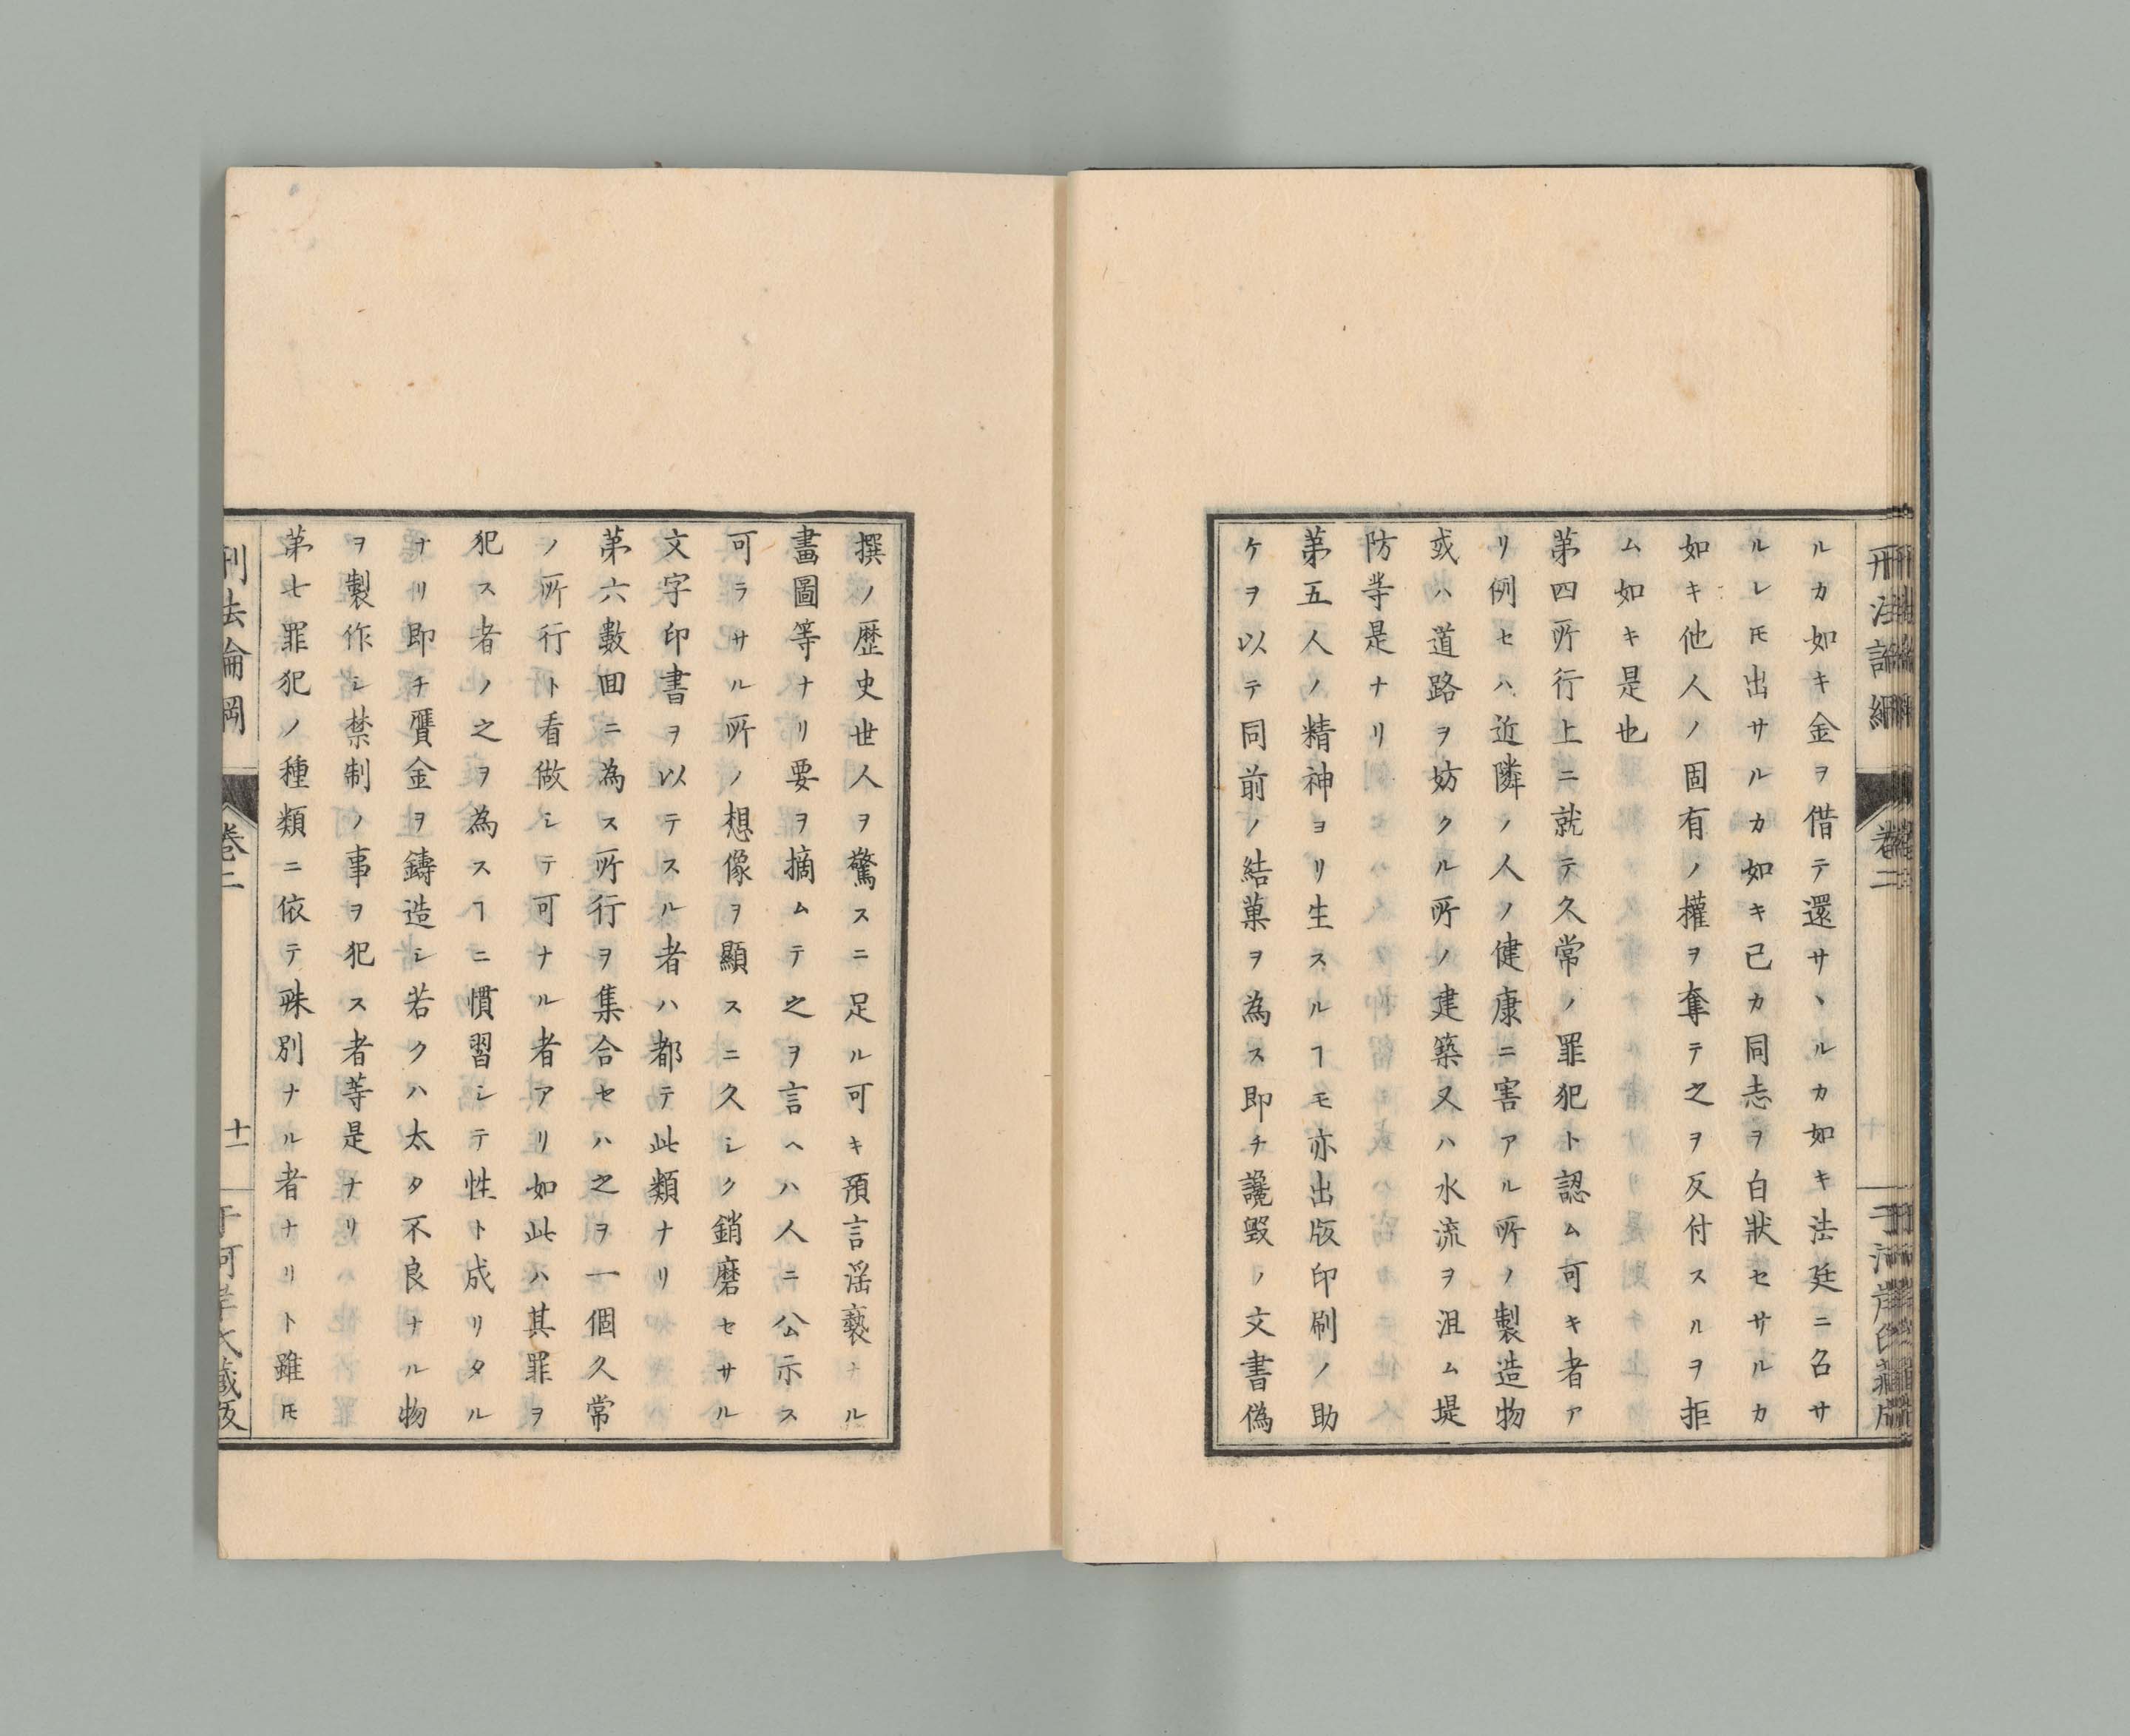 ルカ如キ金ヲ借テ還サヽルカ如キ法廷ニ召サ
ルレ𪜈出サルカ如キ己カ同志ヲ白狀セサルカ
如キ他人ノ固有ノ權ヲ奪テ之ヲ反付スルヲ拒
ム如キ是也
第四所行上ニ就テ久常ノ罪犯ト認ム可キ者ア
リ例セハ近隣ノ人ノ健康ニ害アル所ノ製造物
或ハ道路ヲ妨クル所ノ建築又ハ水流ヲ沮ム堤
防等是ナリ
第五人ノ精神ヨリ生スルヿモ亦出版印刷ノ助
ケヲ以テ同前ノ結菓ヲ為ス即チ讒毀ノ文書偽
撰ノ歷史世人ヲ驚スニ足ル可キ預言淫褻ナル
畫圖等ナリ要ヲ摘ムテ之ヲ言ヘハ人ニ公示ス
可ラサル所ノ想像ヲ顯スニ久シク銷磨セサル
文字印書ヲ以テスル者ハ都テ此類ナリ
第六數回ニ為ス所行ヲ集合セハ之ヲ一個久常
ノ所行ト看做シテ可ナル者アリ如此ハ其罪ヲ
犯ス者ノ之ヲ為スヿニ慣習シテ性ト成リタル
ナリ即チ贋金ヲ鑄造シ若クハ太タ不良ナル物
ヲ製作シ禁制ノ事ヲ犯ス者等是ナリ
第七罪犯ノ種類ニ依テ殊別ナル者ナリト雖𪜈
刑法論綱
卷二
十一